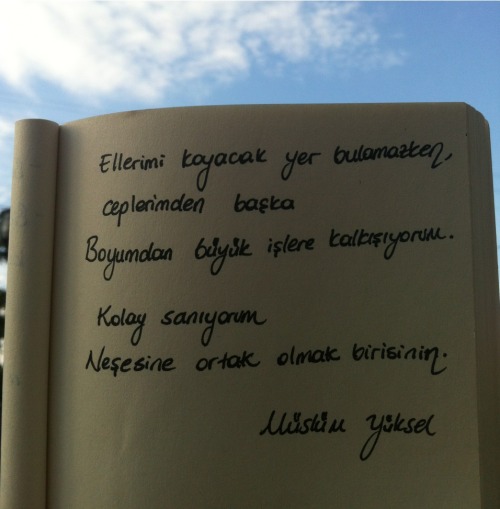 Ellerimi koyacak yer bulamazken,
ceplerimden başka
Boyumdan büyük işlere kalkışıyorum.
Kolay sanıyorum
Neşesine ortak olmak birisinin.
Müslüm Yüksel